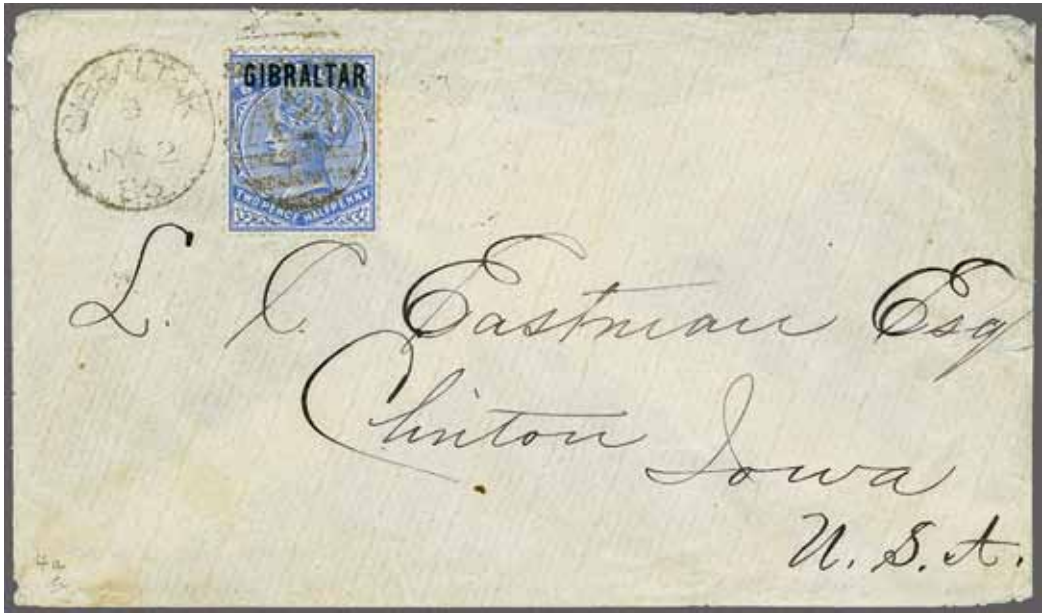 GIBRALTAR
GIBRALTAR
TWO PENCE HALFPENNY
L. C. Eastman Esq
Clinton
Iowa
U. S. A.
4a